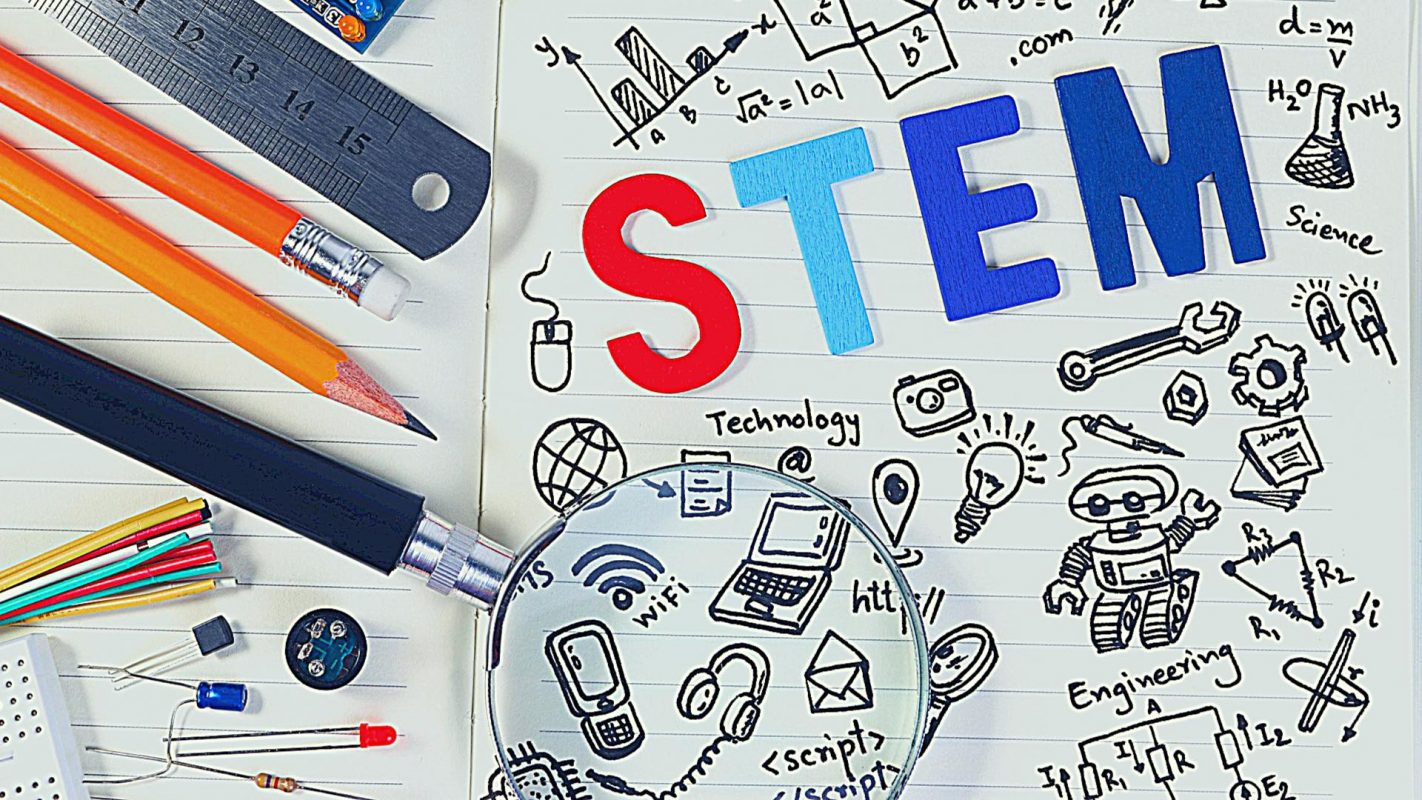 11 12 13 14 15
y
x
A B C
√a² = |a|
a²
b²
.com
d = m/v
H₂O
NH₃
STEM
Science
Technology
@
WiFi
http://
<script>
</script>
R₃
R₂
R₁
i
r
Engineering
A
I₁
R₁
I
R
I₂
E₂